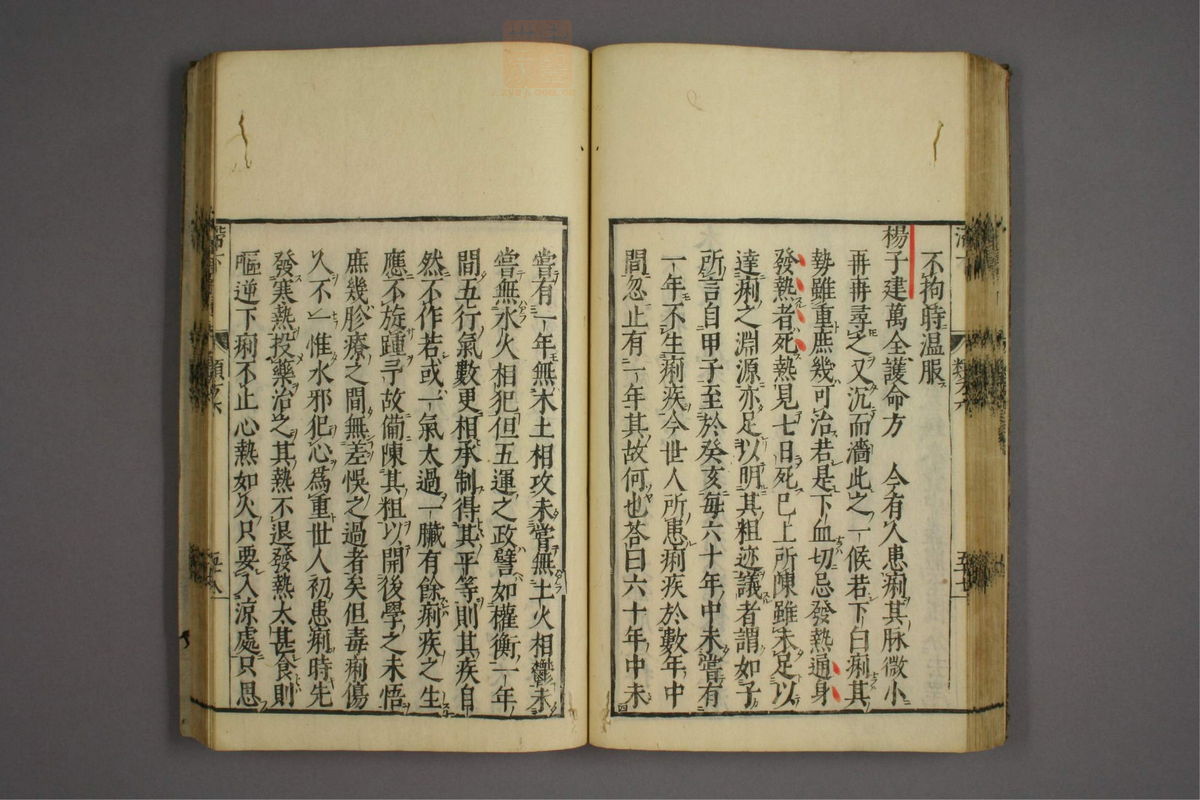 不拘時温服
楊子建萬全護命方　今有人患痢其脉微小
再再尋之又沉而濇此之一候若下白痢其
勢雖重庶幾可治若是下血切忌發熱通身
發熱者死熱見七日死已上所陳雖未足以
達痢之淵源亦足以明其粗迹議者謂如子
所言自甲子至於癸亥每六十年中未嘗有
一年不生痢疾今世人所患痢疾於數年中
間忽止有一年其故何也答曰六十年中未
嘗有一年無木土相攻未嘗無土火相鬱未
嘗無水火相犯但五運之政譬如權衡一年
間五行氣數更相承制得其平等則其疾自
然不作若或一氣太過一臟有餘痢疾之生
應不旋踵予故備陳其粗以開後學之未悟
庶幾胗療之間無差悞之過者矣但毒痢傷
人不一惟水邪犯心爲重世人初患痢時先
發寒熱投藥治之其熱不退發熱太甚食則
嘔逆下痢不止心熱如火只要入涼處只思